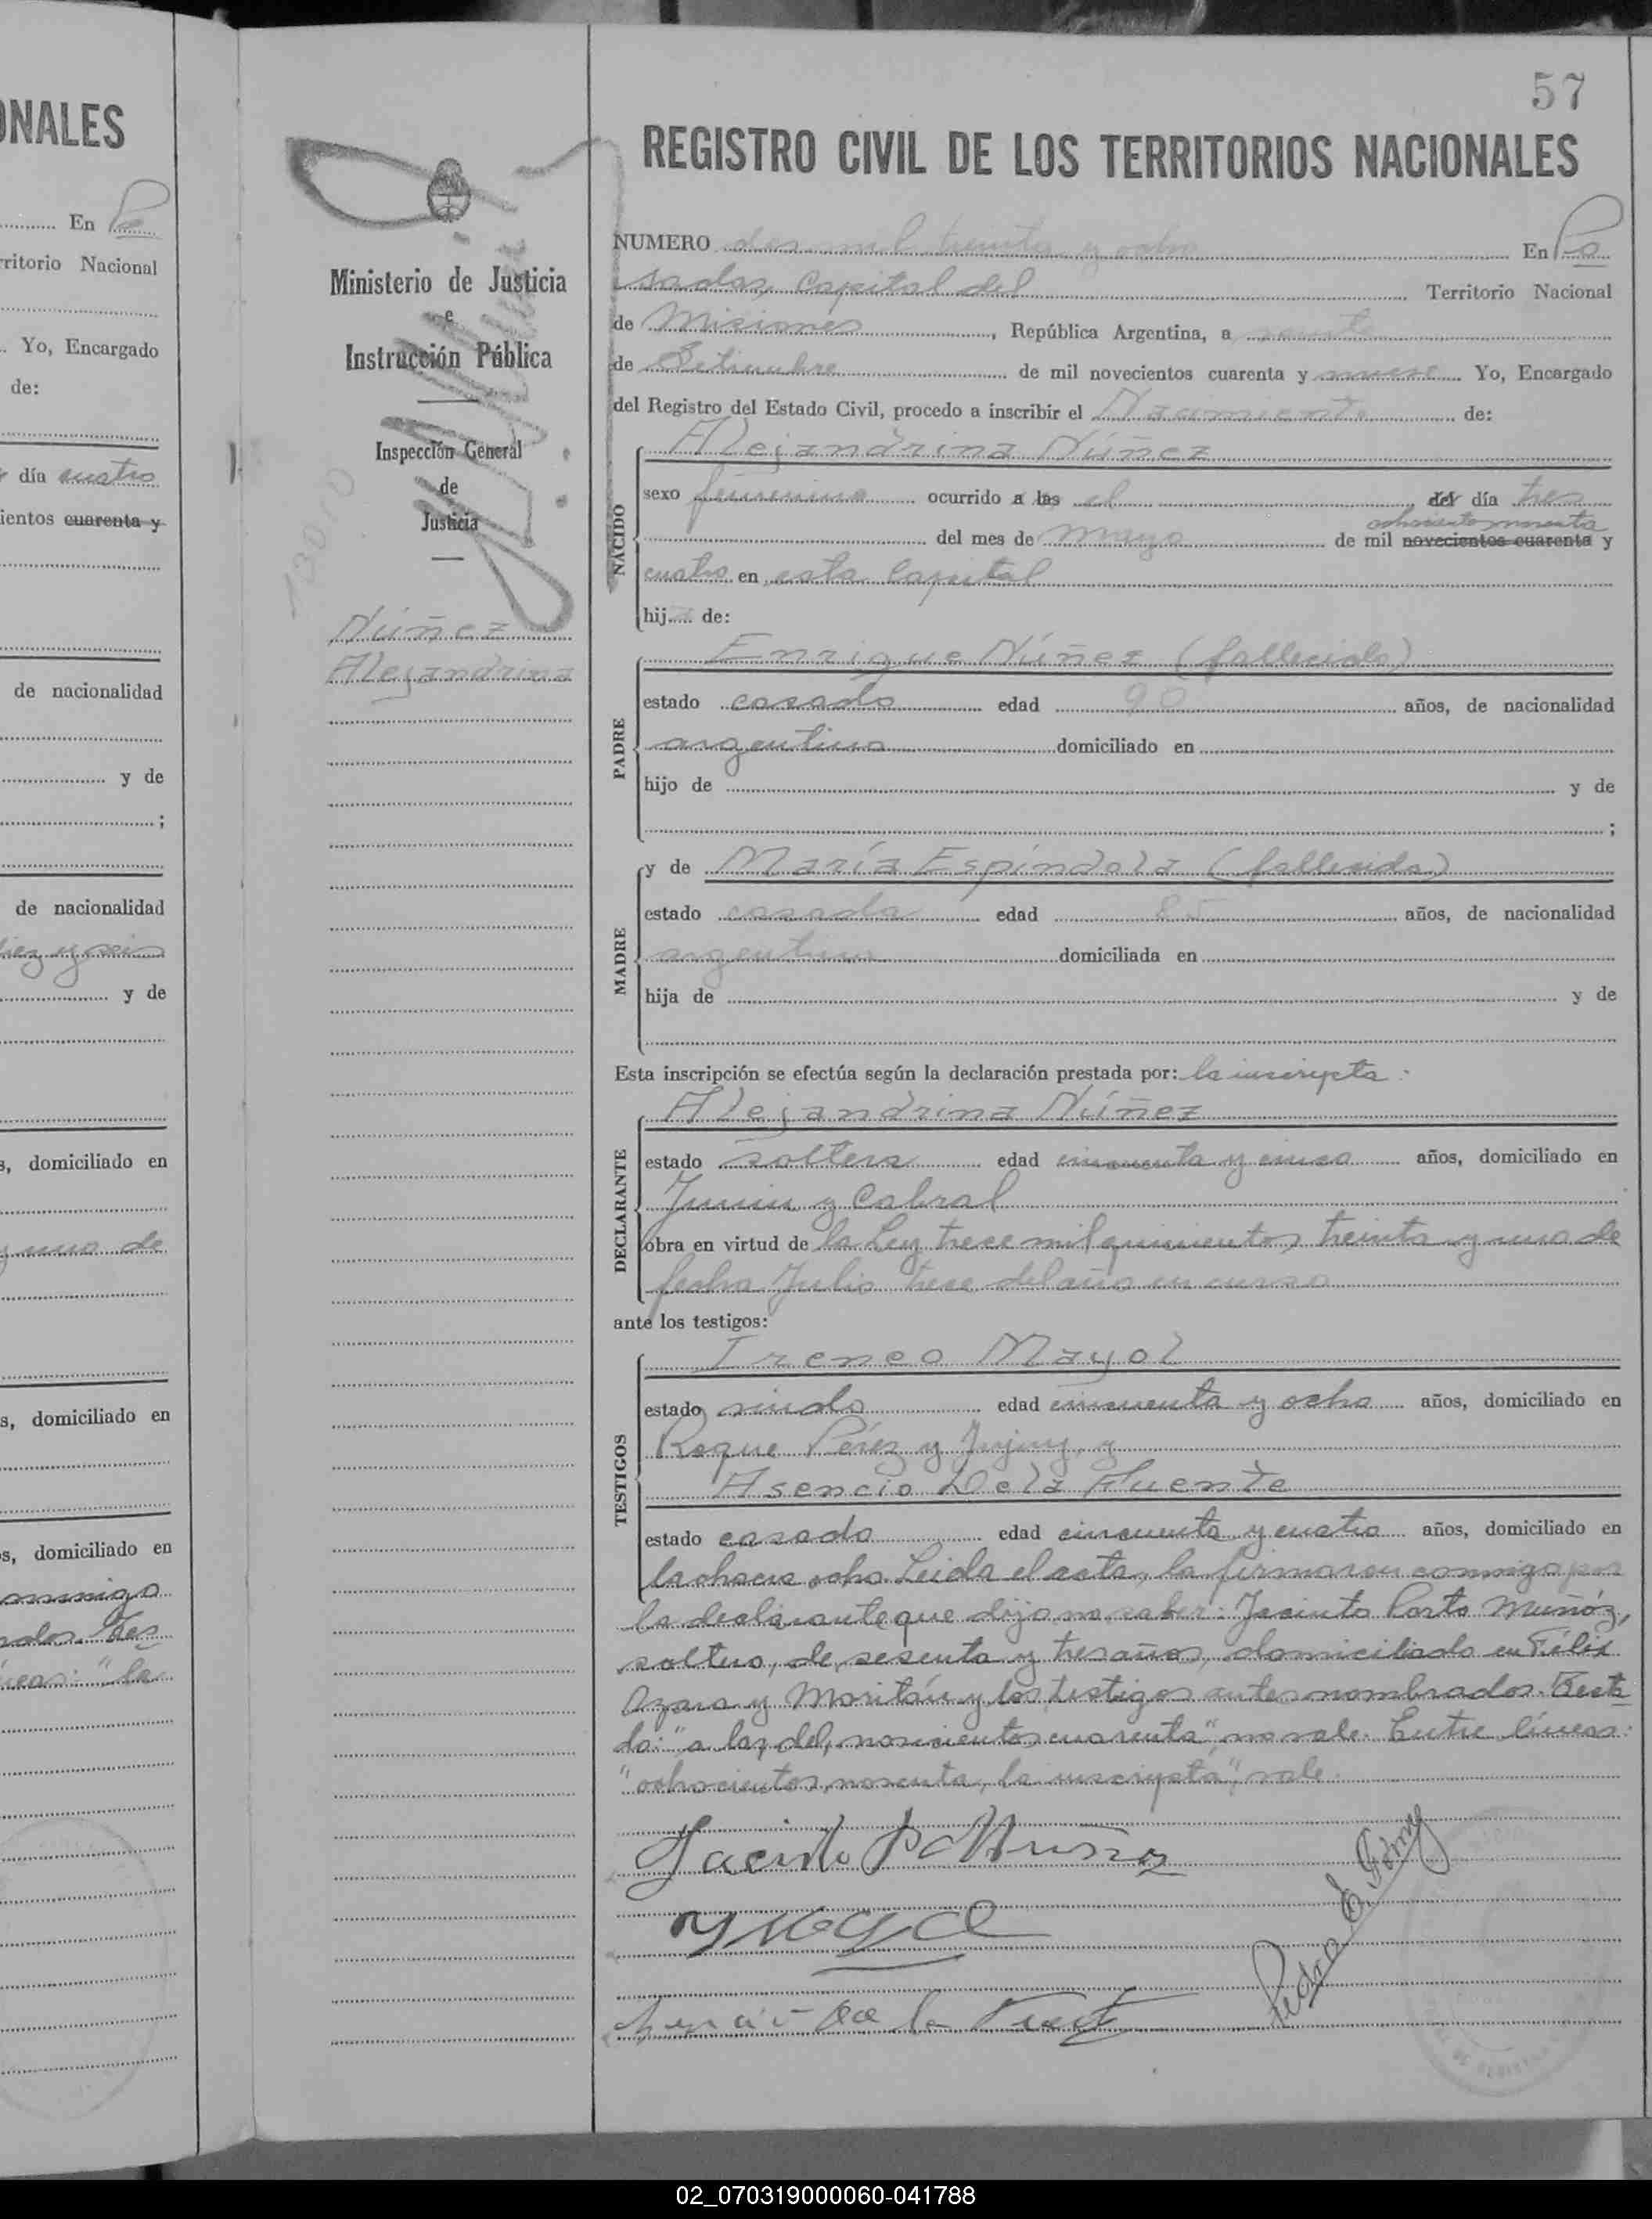 57
REGISTRO CIVIL DE LOS TERRITORIOS NACIONALES
NUMERO dos mil treinta y ocho En Po
sadas, Capital del Territorio Nacional
de Misiones, República Argentina, a veinte
de Setiembre de mil novecientos cuarenta y nueve Yo, Encargado
del Registro del Estado Civil, procedo a inscribir el Nacimiento de:
NACIDO
Alejandrina Núñez
sexo femenino ocurrido a las el del día tres
ochocientos noventa
del mes de mayo de mil novecientos cuarenta y
cuatro en esta Capital
hija de:
PADRE
Enrique Núñez (fallecido)
estado casado edad 90 años, de nacionalidad
argentino domiciliado en
hijo de y de
;
MADRE
y de María Espíndola (fallecida)
estado casada edad 85 años, de nacionalidad
argentina domiciliada en
hija de y de
Esta inscripción se efectúa según la declaración prestada por: la inscripta.
DECLARANTE
Alejandrina Núñez
estado soltera edad cincuenta y cinco años, domiciliado en
Junín y Cabral
obra en virtud de la Ley trece mil quinientos treinta y uno de
fecha Julio trece del año en curso
ante los testigos:
TESTIGOS
Ireneo Mayol
estado viudo edad cincuenta y ocho años, domiciliado en
Roque Pérez y Jujuy, y
Asencio De la Fuente
estado casado edad cincuenta y cuatro años, domiciliado en
la chacra ocho. Leida el acta, la firmaron conmigo por
la declarante que dijo no saber: Jacinto Porto Muñóz,
soltero, de sesenta y tres años, domiciliado en Félix
Azara y Moritán y los testigos antes nombrados. Testa
do: "a las, del, novecientos cuarenta" no vale. Entre líneas:
"ochocientos noventa, la inscripta", vale.
Jacinto P Muñoz
Asencio De la Fuente
Ministerio de Justicia
e
Instrucción Pública
Inspección General
de
Justicia
Núñez
Alejandrina
ONALES
En Po
rritorio Nacional
Yo, Encargado
de:
día cuatro
ientos cuarenta y
de nacionalidad
y de
;
de nacionalidad
diez y seis
y de
s, domiciliado en
y uno de
s, domiciliado en
s, domiciliado en
conmigo
ados. Tes
íneas: "la
02_070319000060-041788